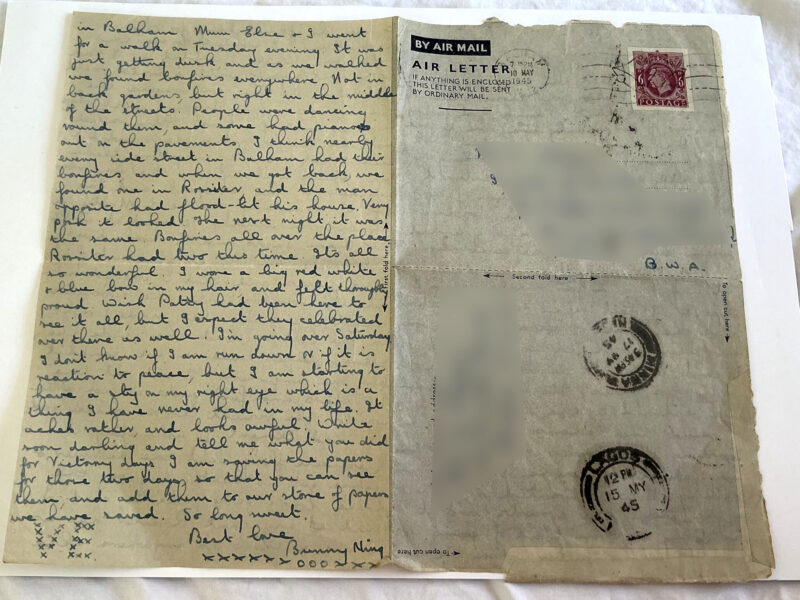 in Balham Mum Elsie & I went
for a walk on Tuesday evening It was
just getting dusk and as we walked
we found bonfires everywhere. Not in
back gardens, but right in the middle
of the streets. People were dancing
round them, and some had pianos
out on the pavements I think nearly
every side street in Balham had their
bonfires and when we got back, we
found one in Rossiter and the man
opposite had flood-lit his house. Very
posh it looked. The next night it was
the same. Bonfires all over the place
Rossiter had two this time. It's all
so wonderful. I wore a big red white
& blue bow in my hair and felt
proud Wish Patsy had been here to
see it all, but I expect they celebrated
over there as well. I'm going over Saturday
I don't know if I am run down or if it is
reaction to peace, but I am starting to
have a sty on my right eye which is a
thing I have never had in my life. It
aches rather, and looks awful. Write
soon darling and tell me what you did
for Victory days I am saving the papers
for those two days, so that you can see
them, and add them to our store of papers
we have saved. So long sweet.
Best love
Bunny Ning
xxxxxxx ooo xxx
First fold here
BY AIR MAIL
AIR LETTER
IF ANYTHING IS ENCLOSED
THIS LETTER WILL BE SENT
BY ORDINARY MAIL.
10 MAY
1945
6D 6D
POSTAGE
B.W.A.
Second fold here
To open cut here
17
45
LAGOS
12 PM
15 MY
45
To open cut here